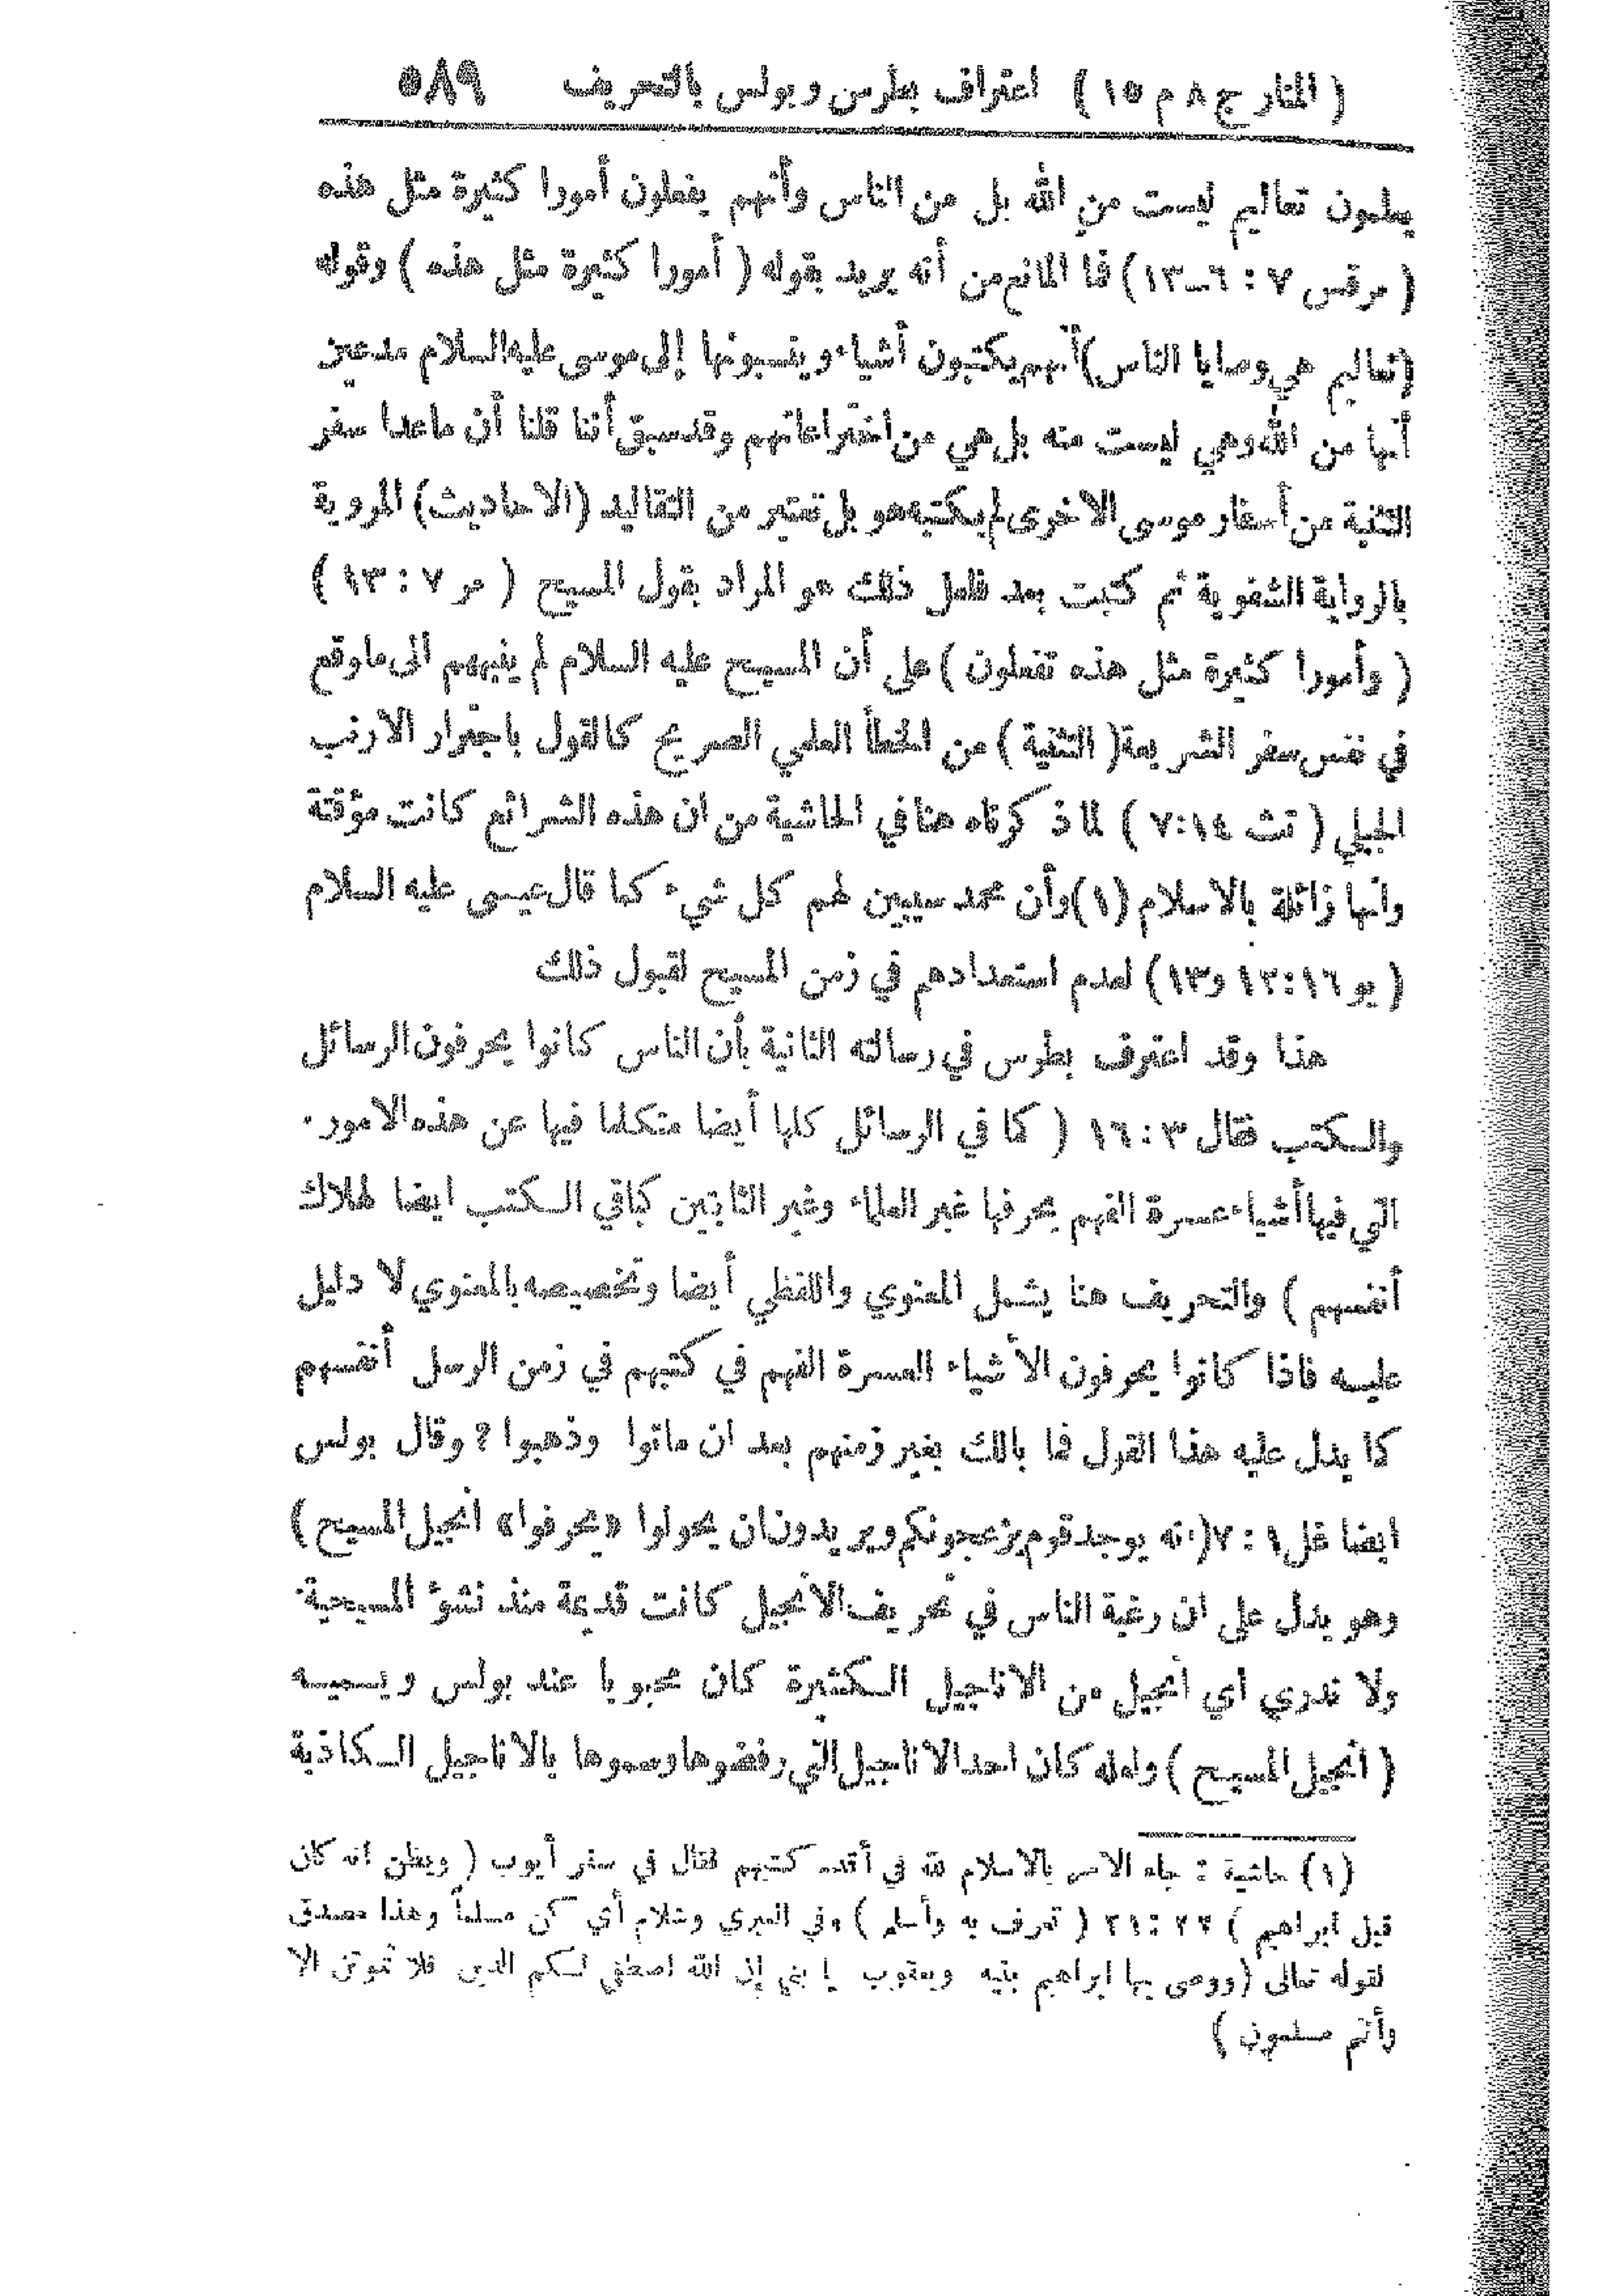 ( المنار ج ٨ م ١٥ ) اعتراف بطرس وبولس بالتحريف ٥٨٩
يعلمون تعاليم ليست من الله بل من الناس وأنهم يفعلون أمورا كثيرة مثل هذه
( مرقس ٧ : ٦ــ١٣ ) فما المانع من أنه يريد بقوله ( أمورا كثيرة مثل هذه ) وقوله
(تعاليم هي وصايا الناس) أنهم يكتبون أشياء وينسبونها إلى موسى عليه السلام مدعين
أنها من الله وهي ليست منه بل هي من اختراعاتهم وقد سبق أننا قلنا أن ما عدا سفر
التثنية من أسفار موسى الاخرى لم يكتبه هو بل تعتبر من التقاليد (الاحاديث) المروية
بالرواية الشفوية ثم كتبت بعد فلعل ذلك هو المراد بقول المسيح ( مر ٧ : ١٣ )
( وأمورا كثيرة مثل هذه تفعلون ) على أن المسيح عليه السلام لم ينبههم الى ما وقع
في نفس سفر الشريعة ( التثنية ) من الخطأ العلمي الصريح كالقول باجترار الارنب
الجبلي ( تث ١٤ : ٧ ) لما ذكرناه هنا في الحاشية من ان هذه الشرائع كانت مؤقتة
وانها زائلة بالاسلام (١) وأن محمد سيبين لهم كل شيء كما قال عيسى عليه السلام
( يو ١٦ : ١٢ و١٣ ) لعدم استعدادهم في زمن المسيح لقبول ذلك
هذا وقد اعترف بطرس في رسالته الثانية بأن الناس كانوا يحرفون الرسائل
والكتب فقال ٣ : ١٦ ( كما في الرسائل كلها أيضا متكلما فيها عن هذه الامور .
التي فيها أشياء عسرة الفهم يحرفها غير العلماء وغير الثابتين كباقي الكتب ايضا لهلاك
أنفسهم ) والتحريف هنا يشمل المعنوي واللفظي أيضا وتخصيصه بالمعنوي لا دليل
عليه فاذا كانوا يحرفون الأشياء العسرة الفهم في كتبهم في زمن الرسل أنفسهم
كما يدل عليه هذا القول فما بالك بغير زمنهم بعد ان ماتوا وذهبوا ? وقال بولس
ايضا غل ١ : ٧ ( انه يوجد قوم يزعجونكم ويريدون ان يحولوا «يحرفوا» انجيل المسيح )
وهو يدل على ان رغبة الناس في تحريف الانجيل كانت قديمة منذ نشؤ المسيحية
ولا ندري أي انجيل من الاناجيل الكثيرة كان محبوبا عند بولس ويسميه
( انجيل المسيح ) ولعله كان احد الاناجيل التي رفضوها وسموها بالاناجيل الكاذبة
(١) حاشية : جاء الامر بالاسلام لله في أقدم كتبهم فقال في سفر أيوب ( ويظن انه كان
قبل ابراهيم ) ٢٢ : ٢١ ( تعرف به وأسلم ) وفي العبري وشلام أي كن مسلماً وهذا مصدق
لقوله تعالى (ووصى بها ابراهيم بنيه ويعقوب يا بني إن الله اصطفى لكم الدين فلا تموتن الا
وأنتم مسلمون )